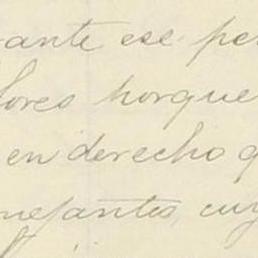 ante ese per
lores porque
en derecho q
nefantes, cuy